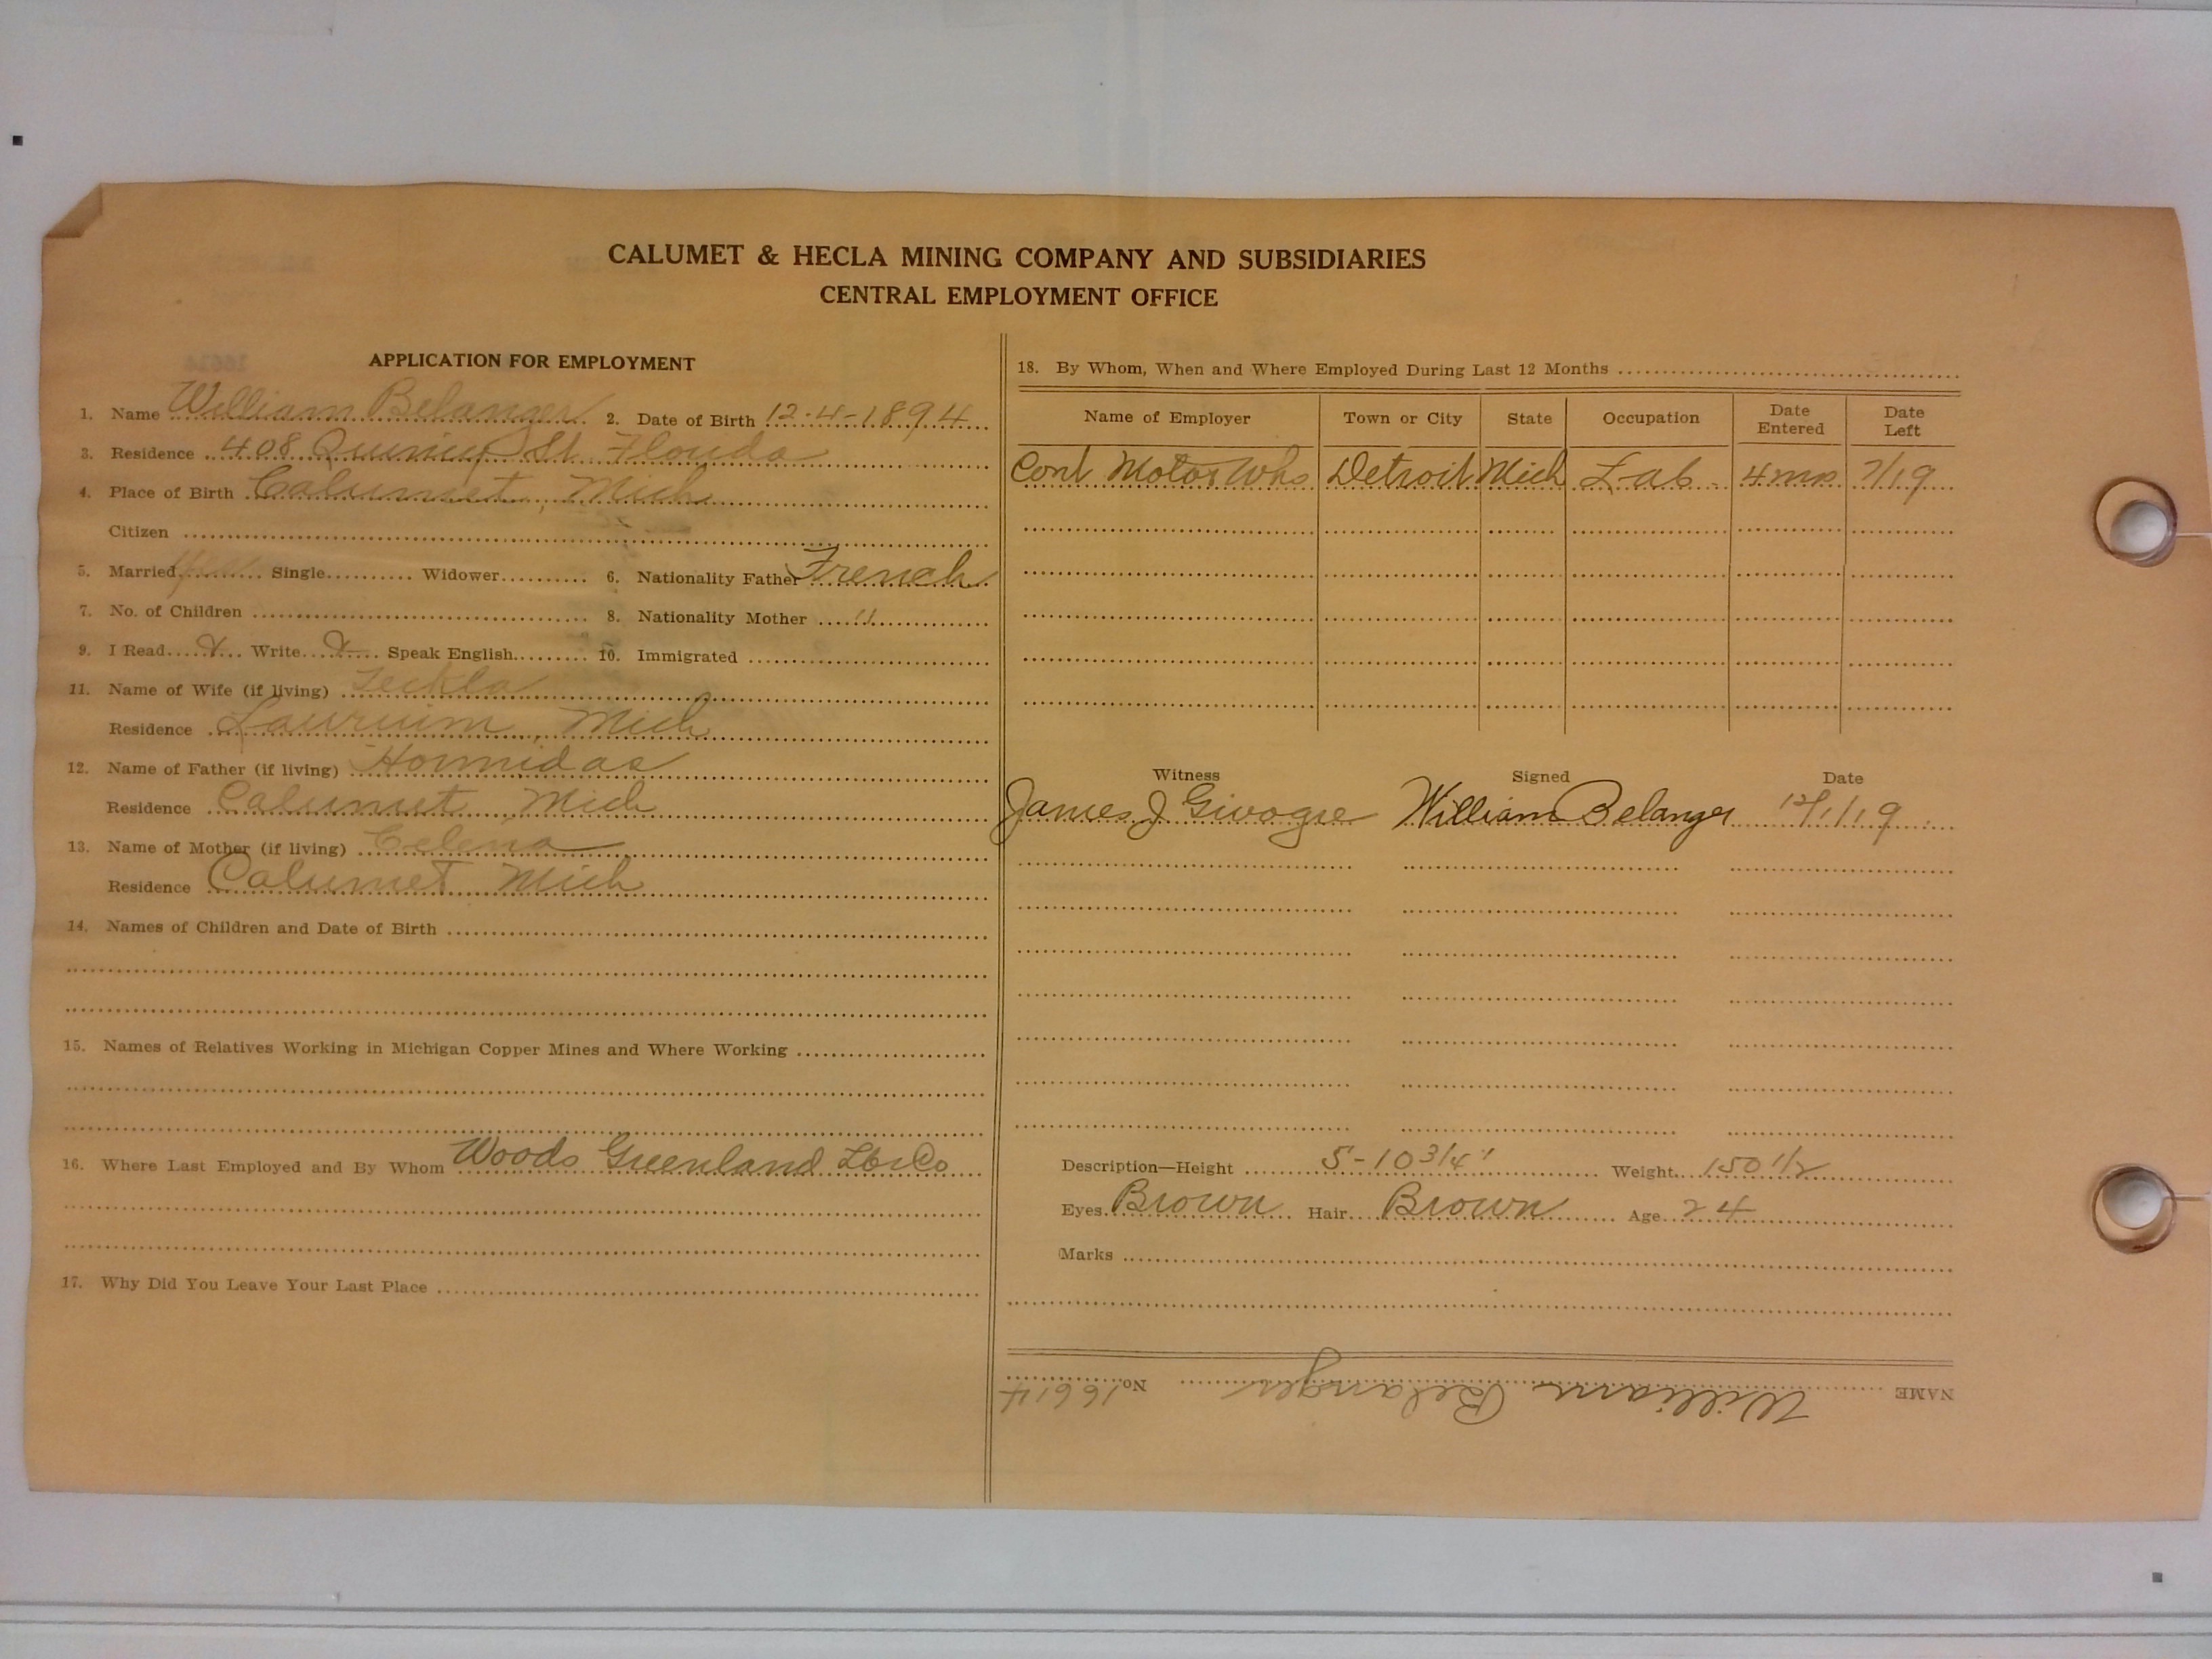 CALUMET & HECLA MINING COMPANY AND SUBSIDIARIES
CENTRAL EMPLOYMENT OFFICE
APPLICATION FOR EMPLOYMENT
1. Name William Belanger 2. Date of Birth 12-4-1894
3. Residence 408 Quincy St. Florida
4. Place of Birth Calumet, Mich
Citizen
5. Married Single Widower 6. Nationality Father French
7. No. of Children 8. Nationality Mother "
9. I Read X Write X Speak English 10. Immigrated
11. Name of Wife (if living) Teckla
Residence Laurium, Mich
12. Name of Father (if living) Hormidas
Residence Calumet Mich
13. Name of Mother (if living) Celena
Residence Calumet Mich
14. Names of Children and Date of Birth
15. Names of Relatives Working in Michigan Copper Mines and Where Working
16. Where Last Employed and By Whom Woods Greenland
17. Why Did You Leave Your Last Place
18. By Whom, When and Where Employed During Last 12 Months
Name of Employer Town or City State Occupation Date Entered Date Left
Cont Motor Wks Detroit Mich Lab 4 mos 7/19
Witness Signed Date
James J William Belanger 12/1/19
Description—Height 5-10 3/4" Weight 150 1/2
Eyes Brown Hair Brown Age 24
Marks
NAME William Belanger No. 16614